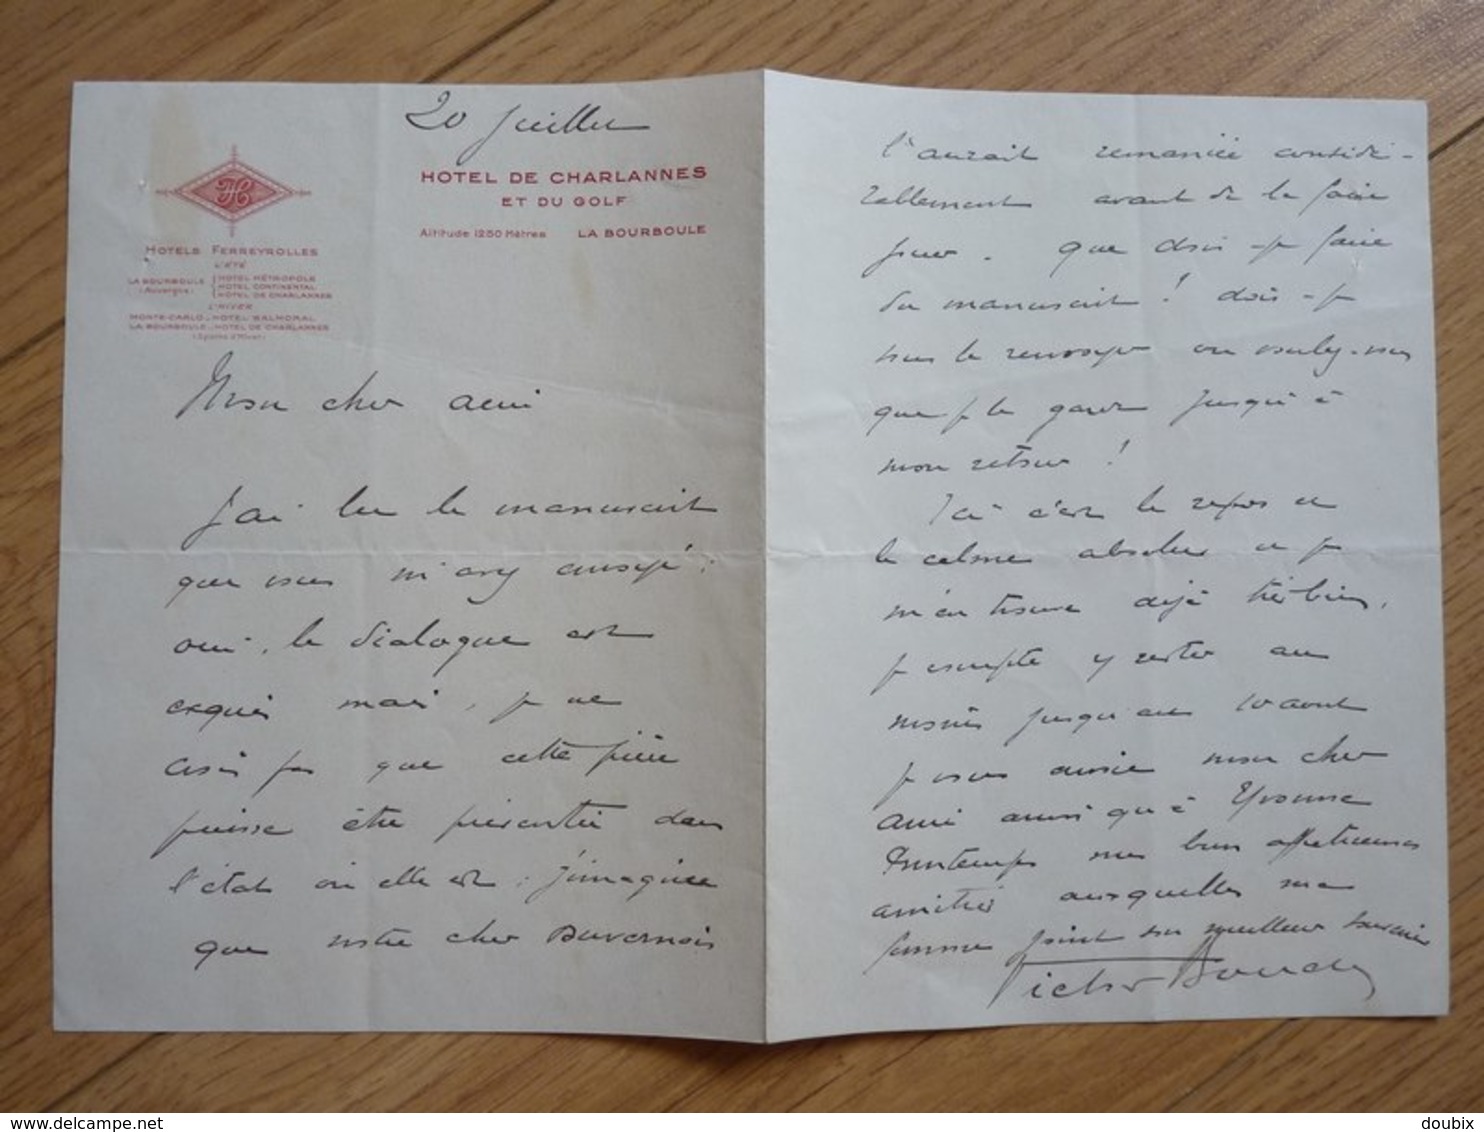 20 Juillet
HOTEL DE CHARLANNES
ET DU GOLF
Altitude 1250 Mètres LA BOURBOULE
H
HOTELS FERREYROLLES
L'ÉTÉ
LA BOURBOULE (Auvergne)
HOTEL MÉTROPOLE
HOTEL CONTINENTAL
HOTEL DE CHARLANNES
L'HIVER
MONTE-CARLO _ HOTEL BALMORAL
LA BOURBOULE _ HOTEL DE CHARLANNES
(Sports d'Hiver)
Mon cher ami
J'ai lu le manuscrit
que vous m'avez envoyé :
oui, le dialogue est
exquis mais, je ne
crois pas que cette pièce
puisse être présentée dans
l'état où elle est : j'imagine
que notre cher Duvernois
l'aurait remaniée considé-
rablement avant de la faire
jouer. Que dois-je faire
du manuscrit ! dois-je
vous le renvoyer ou voulez-vous
que je le garde jusqu'à
mon retour !
Ici c'est le repos et
le calme absolus et je
m'en trouve déjà très bien,
je compte y rester au
moins jusqu'au 10 août
Je vous envoie mon cher
ami ainsi qu'à Yvonne
Printemps mes bien affectueuses
amitiés auxquelles ma
femme joint son meilleur souvenir
Victor Boucher
delcampe.net
doubix